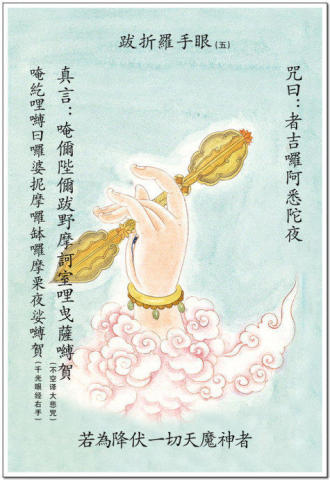 跋折羅手眼(五)
咒曰：者吉囉阿悉陀夜
真言：唵儞陛儞跋野摩訶室哩曳薩嚩賀
(不空译大悲咒)
唵紇哩嚩日囉婆抳摩囉缽囉摩栗夜娑嚩賀
(千光眼经右手)
若為降伏一切天魔神者